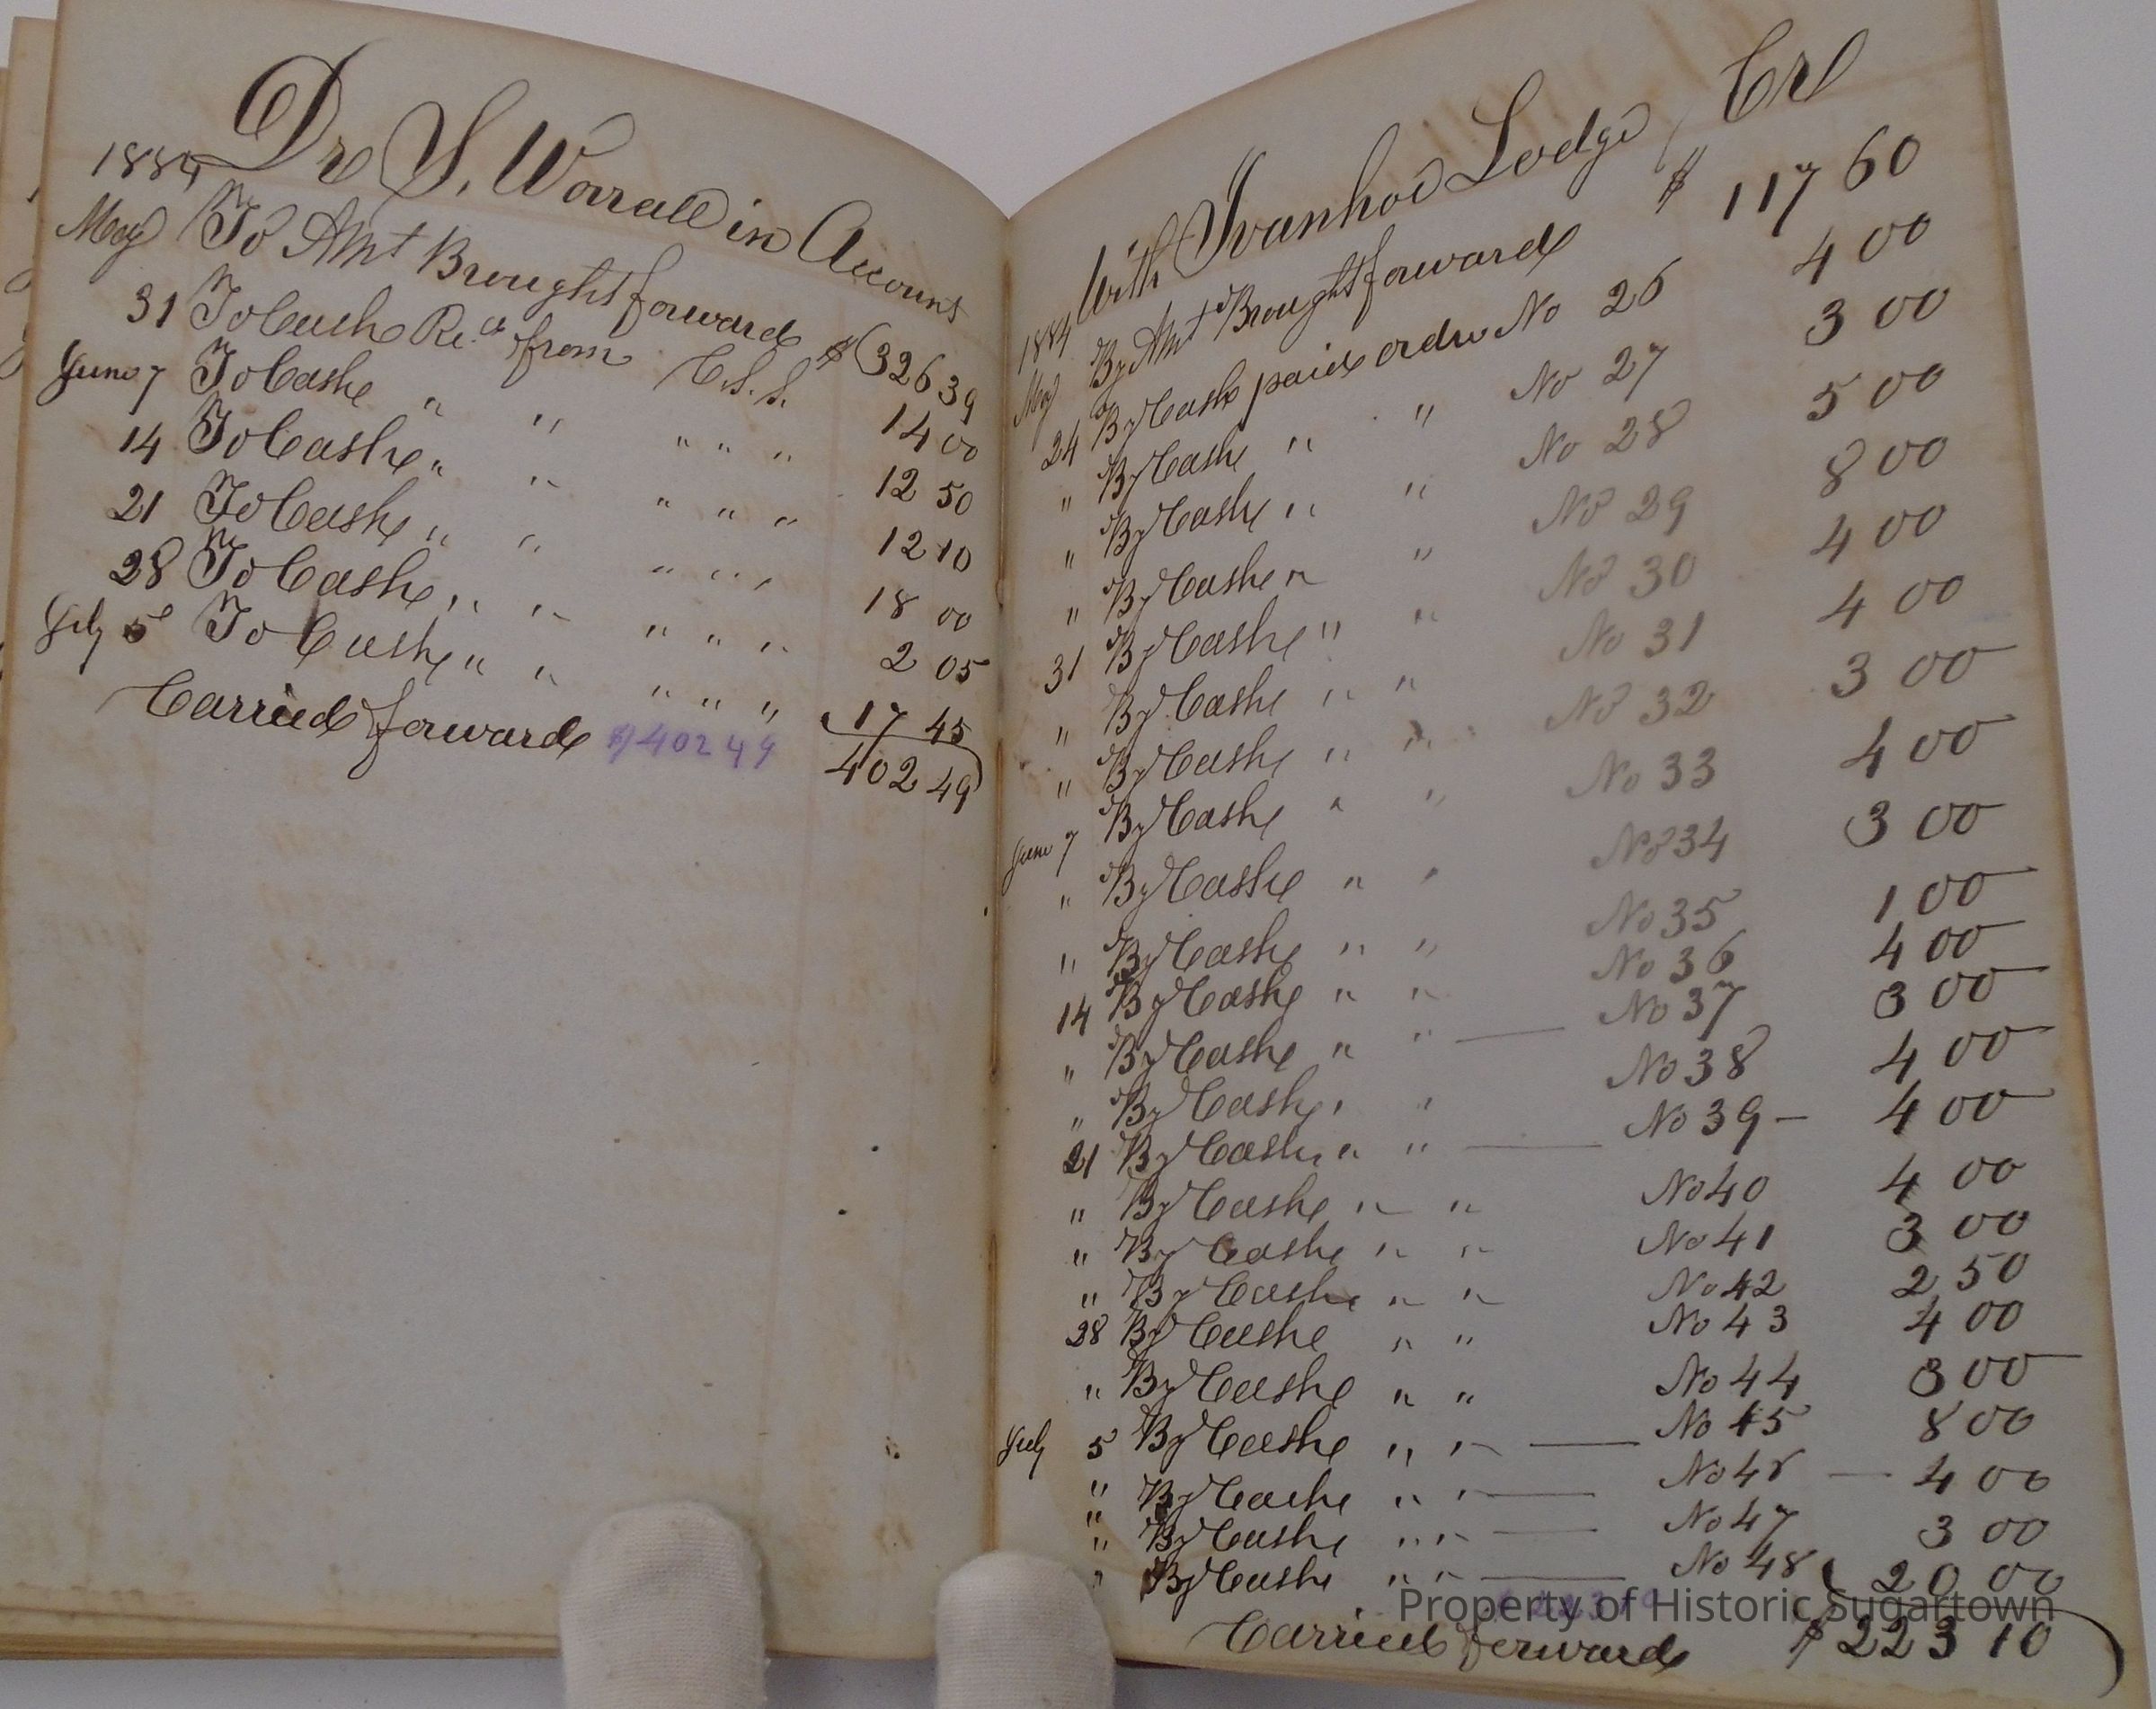 Dr S. Worrall in Account
1884
May To Amt Brought forward $ 326 39
31 To Cash Rec.d from C.S.S. 14 00
June 7 To Cash " " " " " 12 50
14 To Cash " " " " " 12 10
21 To Cash " " " " " 18 00
28 To Cash " " " " " 2 05
July 5 To Cash " " " " " 17 45
Carried forward $402 49 402 49
With Ivanhoe Lodge Cr
1884 By Amt Brought forward $ 117 60
May 24 By Cash paid order No 26 4 00
" By Cash " " No 27 3 00
" By Cash " " No 28 5 00
" By Cash " " No 29 8 00
31 By Cash " " No 30 4 00
" By Cash " " No 31 4 00
" By Cash " " No 32 3 00
June 7 By Cash " " No 33 4 00
" By Cash " " No 34 3 00
" By Cash " " No 35 1 00
14 By Cash " " No 36 4 00
" By Cash " " No 37 3 00
" By Cash " " No 38 4 00
21 By Cash " " No 39 – 4 00
" By Cash " " No 40 4 00
" By Cash " " No 41 3 00
" By Cash " " No 42 2 50
28 By Cash " " No 43 4 00
" By Cash " " No 44 3 00
July 5 By Cash " " No 45 8 00
" By Cash " " No 46 — 4 00
" By Cash " " No 47 3 00
" By Cash " " No 48 20 00
Carried forward $ 223 10
Property of Historic Sugartown